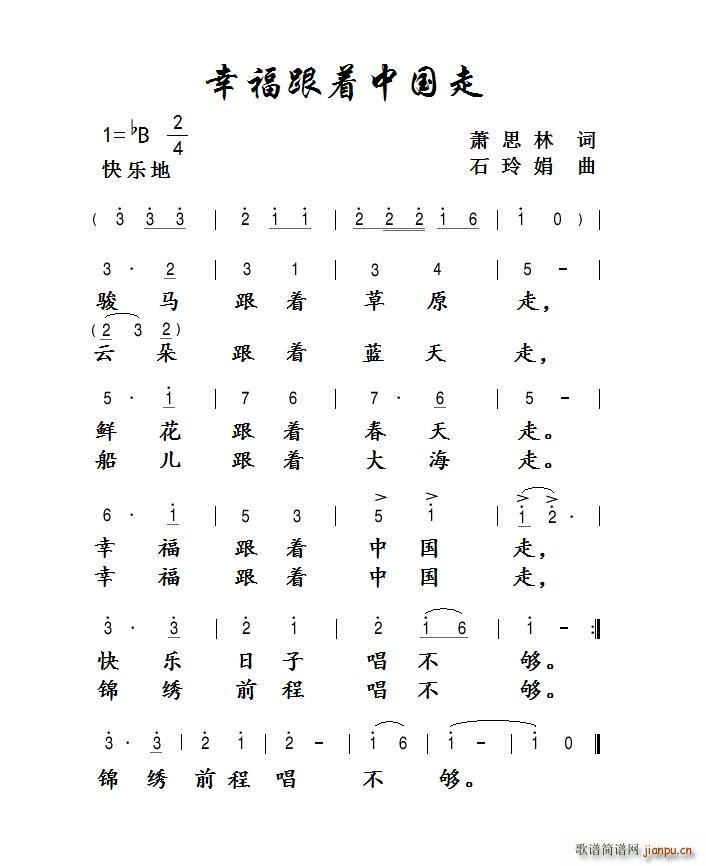 幸福跟着中国走
1=♭B 2/4 萧思林 词
快乐地 石玲娟 曲
( 3̇ 3̇ 3̇ | 2̇ 1̇ 1̇ | 2̇ 2̇ 2̇ 1̇ 6 | 1̇ 0 ) |
3 · 2 | 3 1 | 3 4 | 5 – |
骏马跟着草原走，
( 2 3 2 )
云朵跟着蓝天走，
5 · 1̇ | 7 6 | 7 · 6 | 5 – |
鲜花跟着春天走。
船儿跟着大海走。
6 · 1̇ | 5 3 | 5 1̇ | 1̇ 2̇ · |
幸福跟着中国走，
幸福跟着中国走，
3̇ · 3̇ | 2̇ 1̇ | 2̇ 1̇ 6 | 1̇ – :‖
快乐日子唱不够。
锦绣前程唱不够。
3̇ · 3̇ | 2̇ 1̇ | 2̇ – | 1̇ 6 | 1̇ – | 1̇ 0 ‖
锦绣前程唱不够。
歌谱简谱网 jianpu.cn